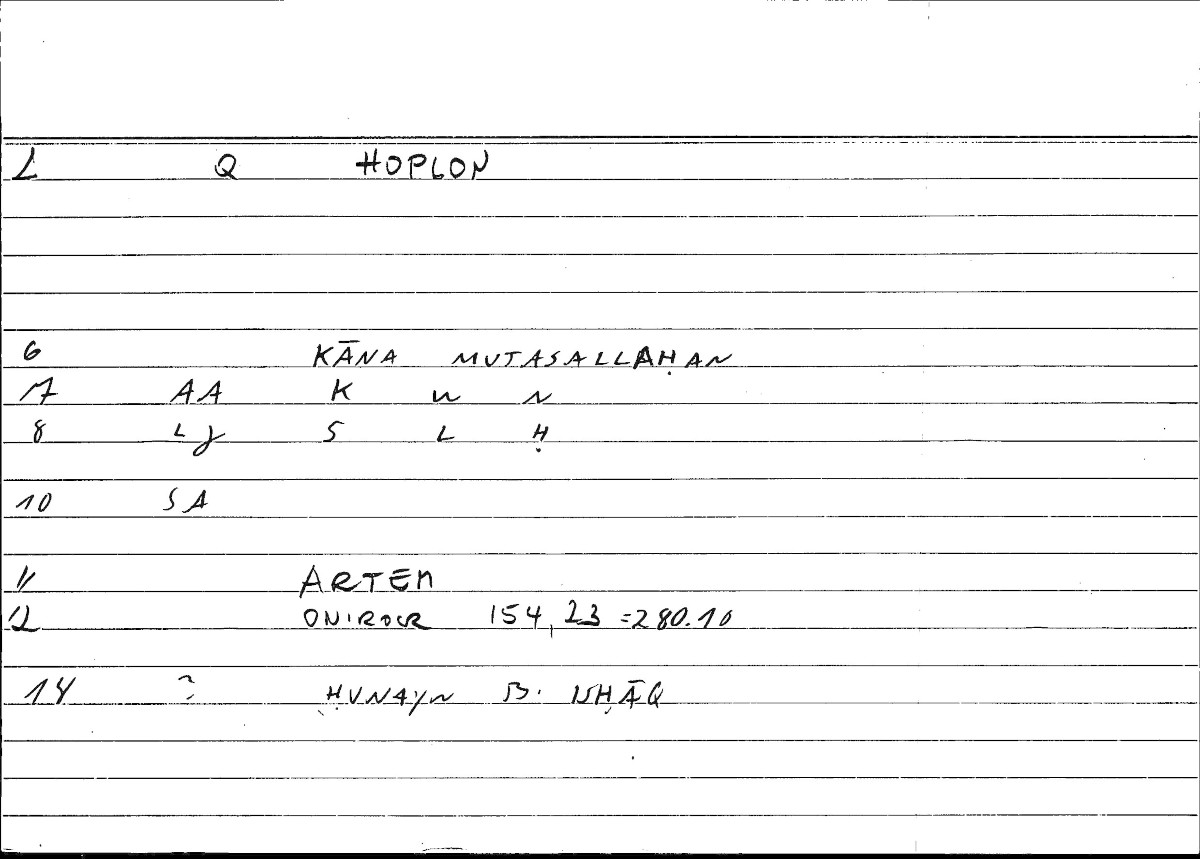 1 Q HOPLON
6 KĀNA MUTASALLAḤAN
7 AA K W N
8 LJ S L Ḥ
10 SA
11 ARTEM
12 ONIROCR 154,23 =280.10
14 ? ḤUNAYN B. ISḤĀQ